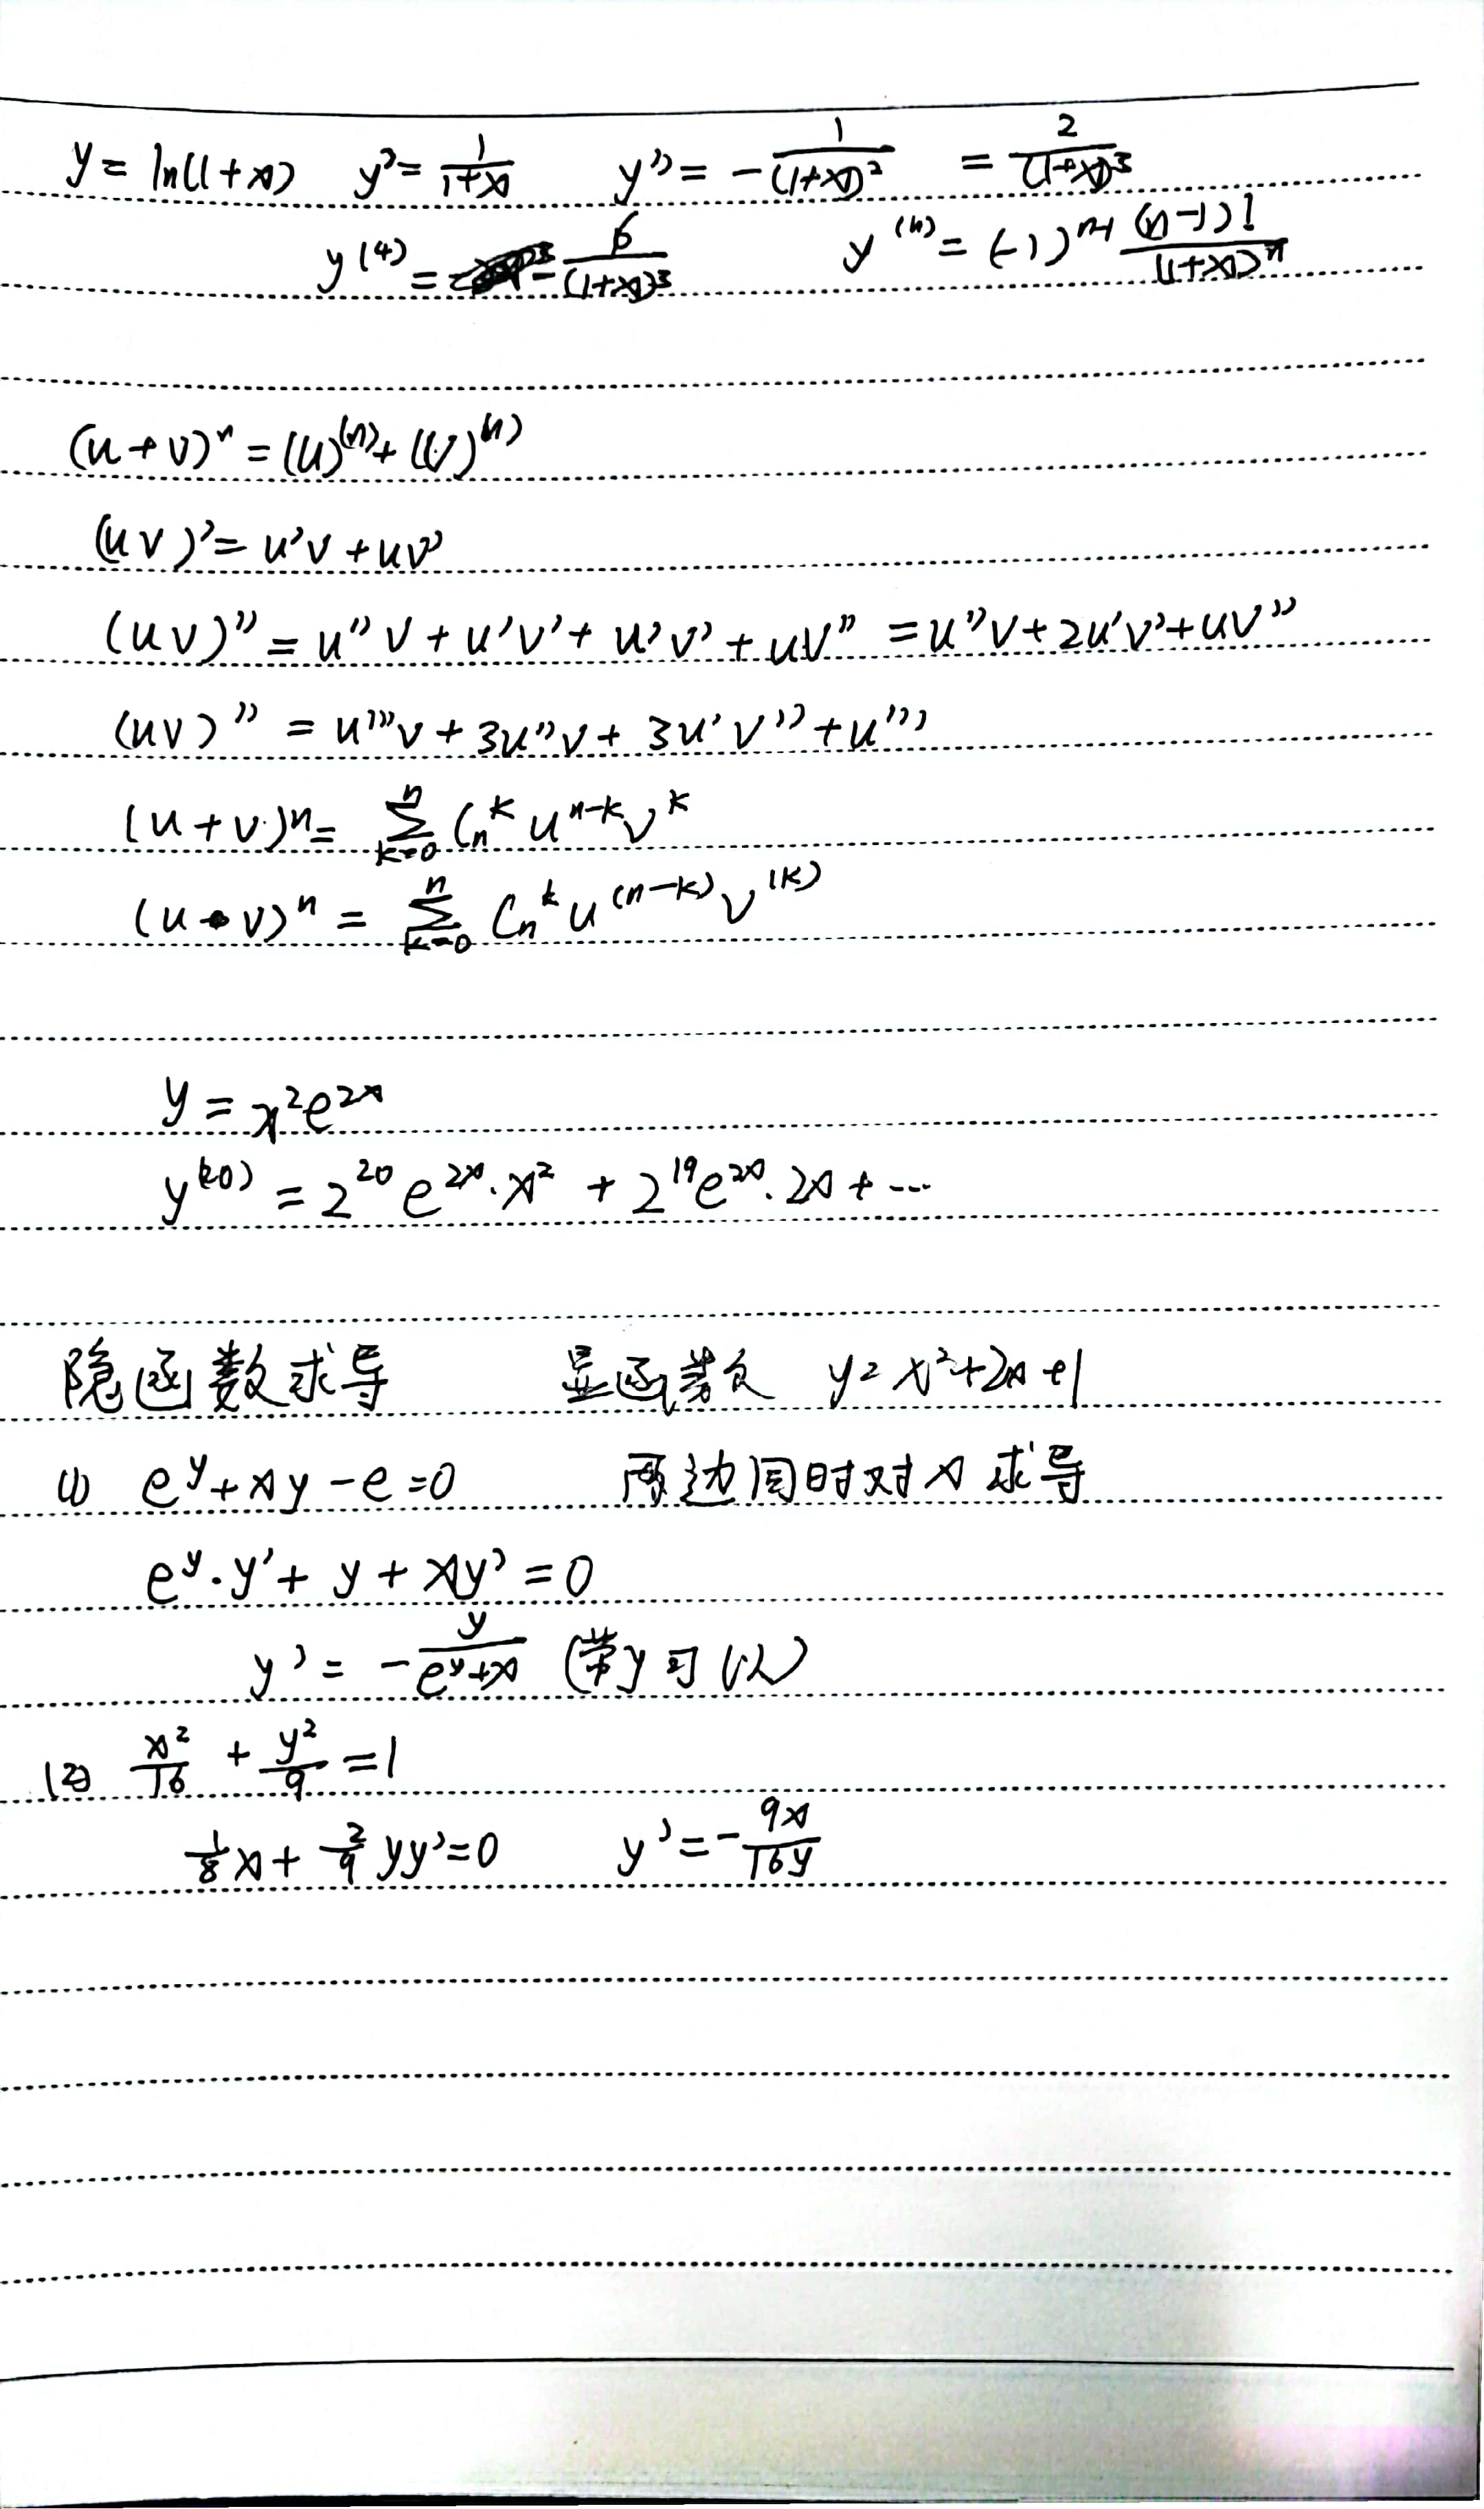 y = ln(1+x) y' = 1/(1+x) y'' = -1/(1+x)² = 2/(1+x)³
y⁽⁴⁾ = -6/(1+x)³ y⁽ⁿ⁾ = (-1)ⁿ⁻¹ (n-1)!/(1+x)ⁿ
(u+v)ⁿ = (u)⁽ⁿ⁾ + (v)⁽ⁿ⁾
(uv)' = u'v + uv'
(uv)'' = u''v + u'v' + u'v' + uv'' = u''v + 2u'v' + uv''
(uv)'' = u'''v + 3u''v + 3u'v'' + u'''
(u+v)ⁿ = Σₖ₌₀ⁿ Cₙᵏ uⁿ⁻ᵏ vᵏ
(u·v)ⁿ = Σₖ₌₀ⁿ Cₙᵏ u⁽ⁿ⁻ᵏ⁾ v⁽ᵏ⁾
y = x²e²ˣ
y⁽²⁰⁾ = 2²⁰ e²ˣ·x² + 2¹⁹e²ˣ·2x + …
隐函数求导 显函数 y = x²+2x+1
(1) eʸ + xy - e = 0 两边同时对x求导
eʸ·y' + y + xy' = 0
y' = -y/(eʸ+x) (带y可以)
(2) x²/16 + y²/9 = 1
1/8 x + 2/9 yy' = 0 y' = -9x/16y